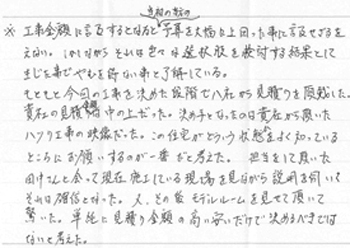 当初の契約
※ 工事金額に言及するとなると予算を大幅に上回った事に言及せざるを
えない。しかしながらそれは色々な選択肢を検討する結果として
生じた事でやむを得ない事と了解している。
もともと今回の工事を決めた段階で八社から見積りを頂戴した。
貴社の見積金額は中の上だった。決め手となったのは貴社から頂いた
ハツリ工事の映像だった。この住宅がどういう状態かをよく知っている
ところにお願いするのが一番だと考えた。担当をして頂いた
田中さんと会って現在施工している現場を見ながら説明を伺い
それは確信となった。又、その後モデルルームを見せて頂いて
驚いた。単純に見積り金額の高い安いだけで決めるべきでは
ないと考えた。